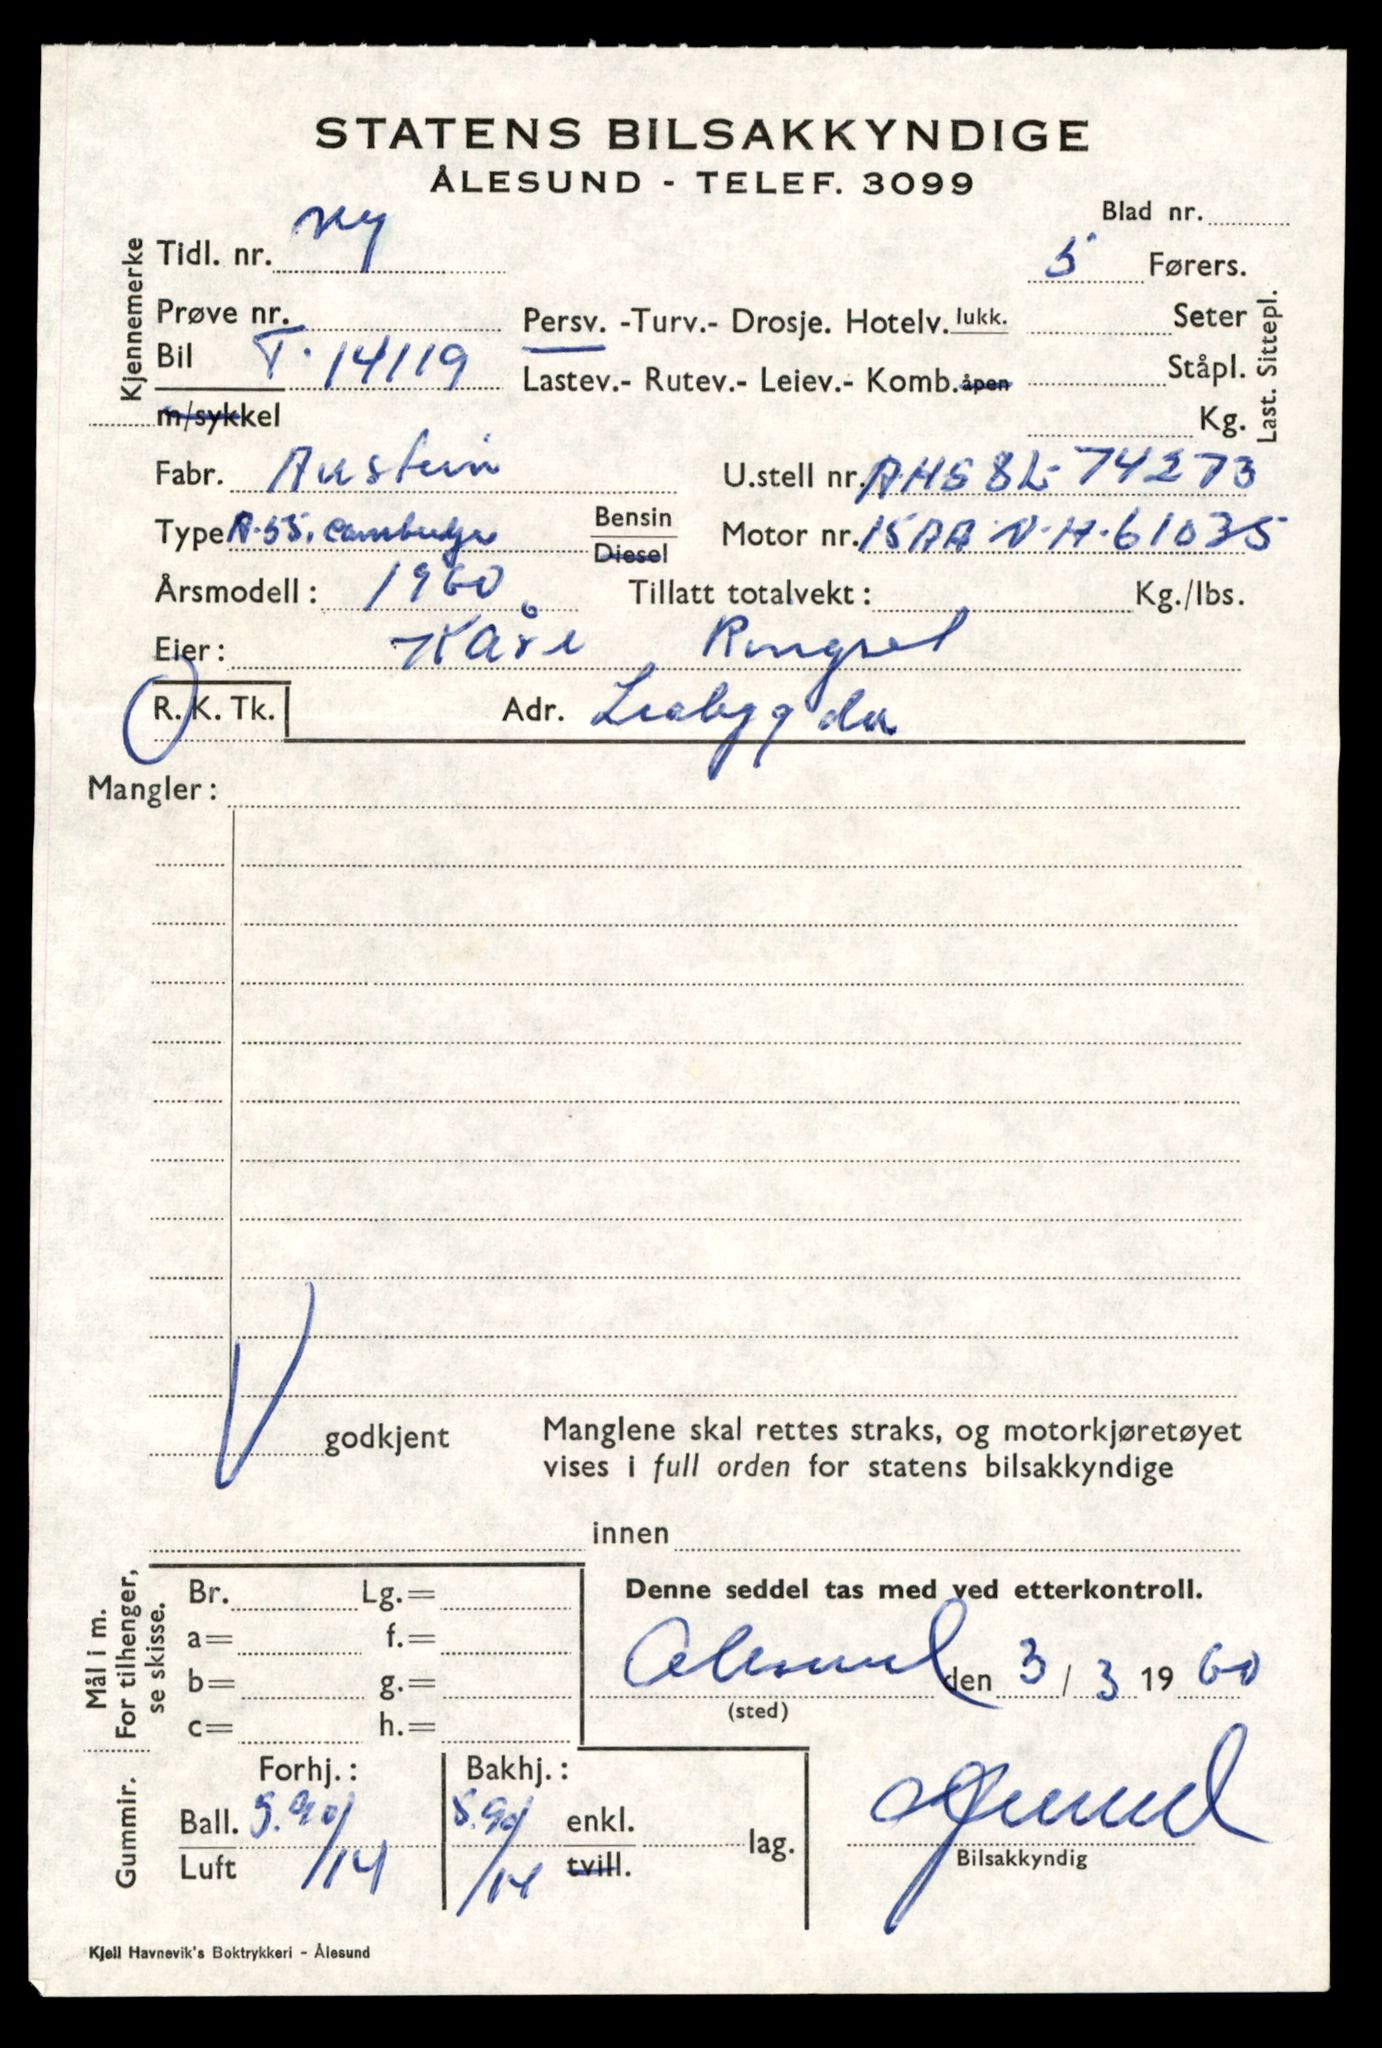 STATENS BILSAKKYNDIGE
ÅLESUND - TELEF. 3099
Blad nr.
Kjennemerke
Tidl. nr. Ny
5 Førers.
Prøve nr.
Persv. -Turv.- Drosje. Hotelv. lukk.
Seter
Bil T. 14119
Lastev.- Rutev.- Leiev.- Komb. åpen
Ståpl.
m/sykkel
Kg.
Last. Sittepl.
Fabr. Austin
U.stell nr. AHS8L 74273
Type A.55. Cambridge
Bensin
Diesel
Motor nr. 15AA N.H.61035
Årsmodell: 1960
Tillatt totalvekt: Kg./lbs.
Eier: Kåre Ringset
R. K. Tk.
Adr. Liabygda
Mangler:
V godkjent
Manglene skal rettes straks, og motorkjøretøyet
vises i full orden for statens bilsakkyndige
innen
Mål i m.
For tilhenger,
se skisse.
Br. Lg.=
a= f.=
b= g.=
c= h.=
Denne seddel tas med ved etterkontroll.
Ålesund den 3/3 1960
(sted)
Gummir.
Forhj.: Bakhj.:
Ball. 5.90/ 5.90/ enkl.
Luft /14 /14 tvill.
lag.
Bilsakkyndig
Kjell Havnevik's Boktrykkeri - Ålesund